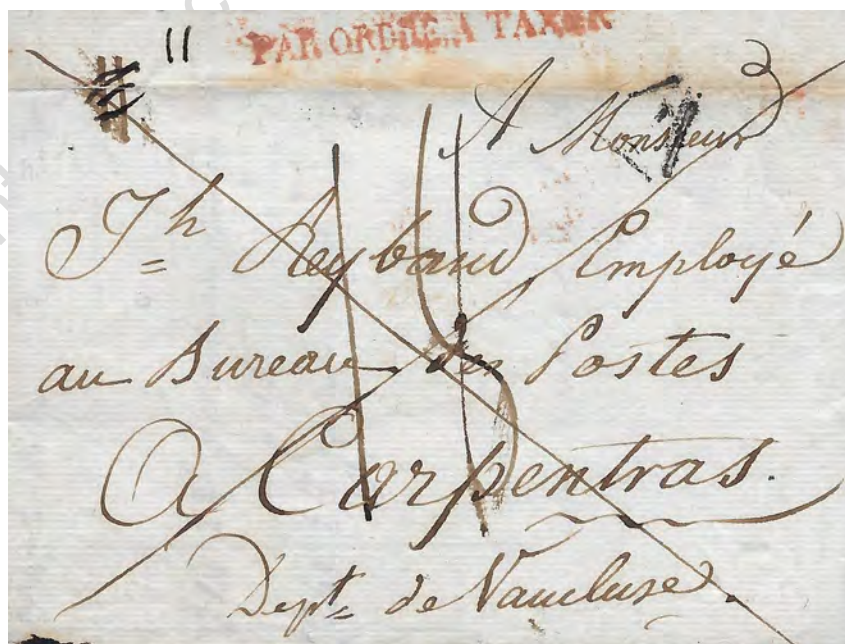 11
PAR ORDRE A TAXER
A Monsieur
Jh Reybaud Employé
au Bureau des Postes
A Carpentras.
Dept de Vaucluse.